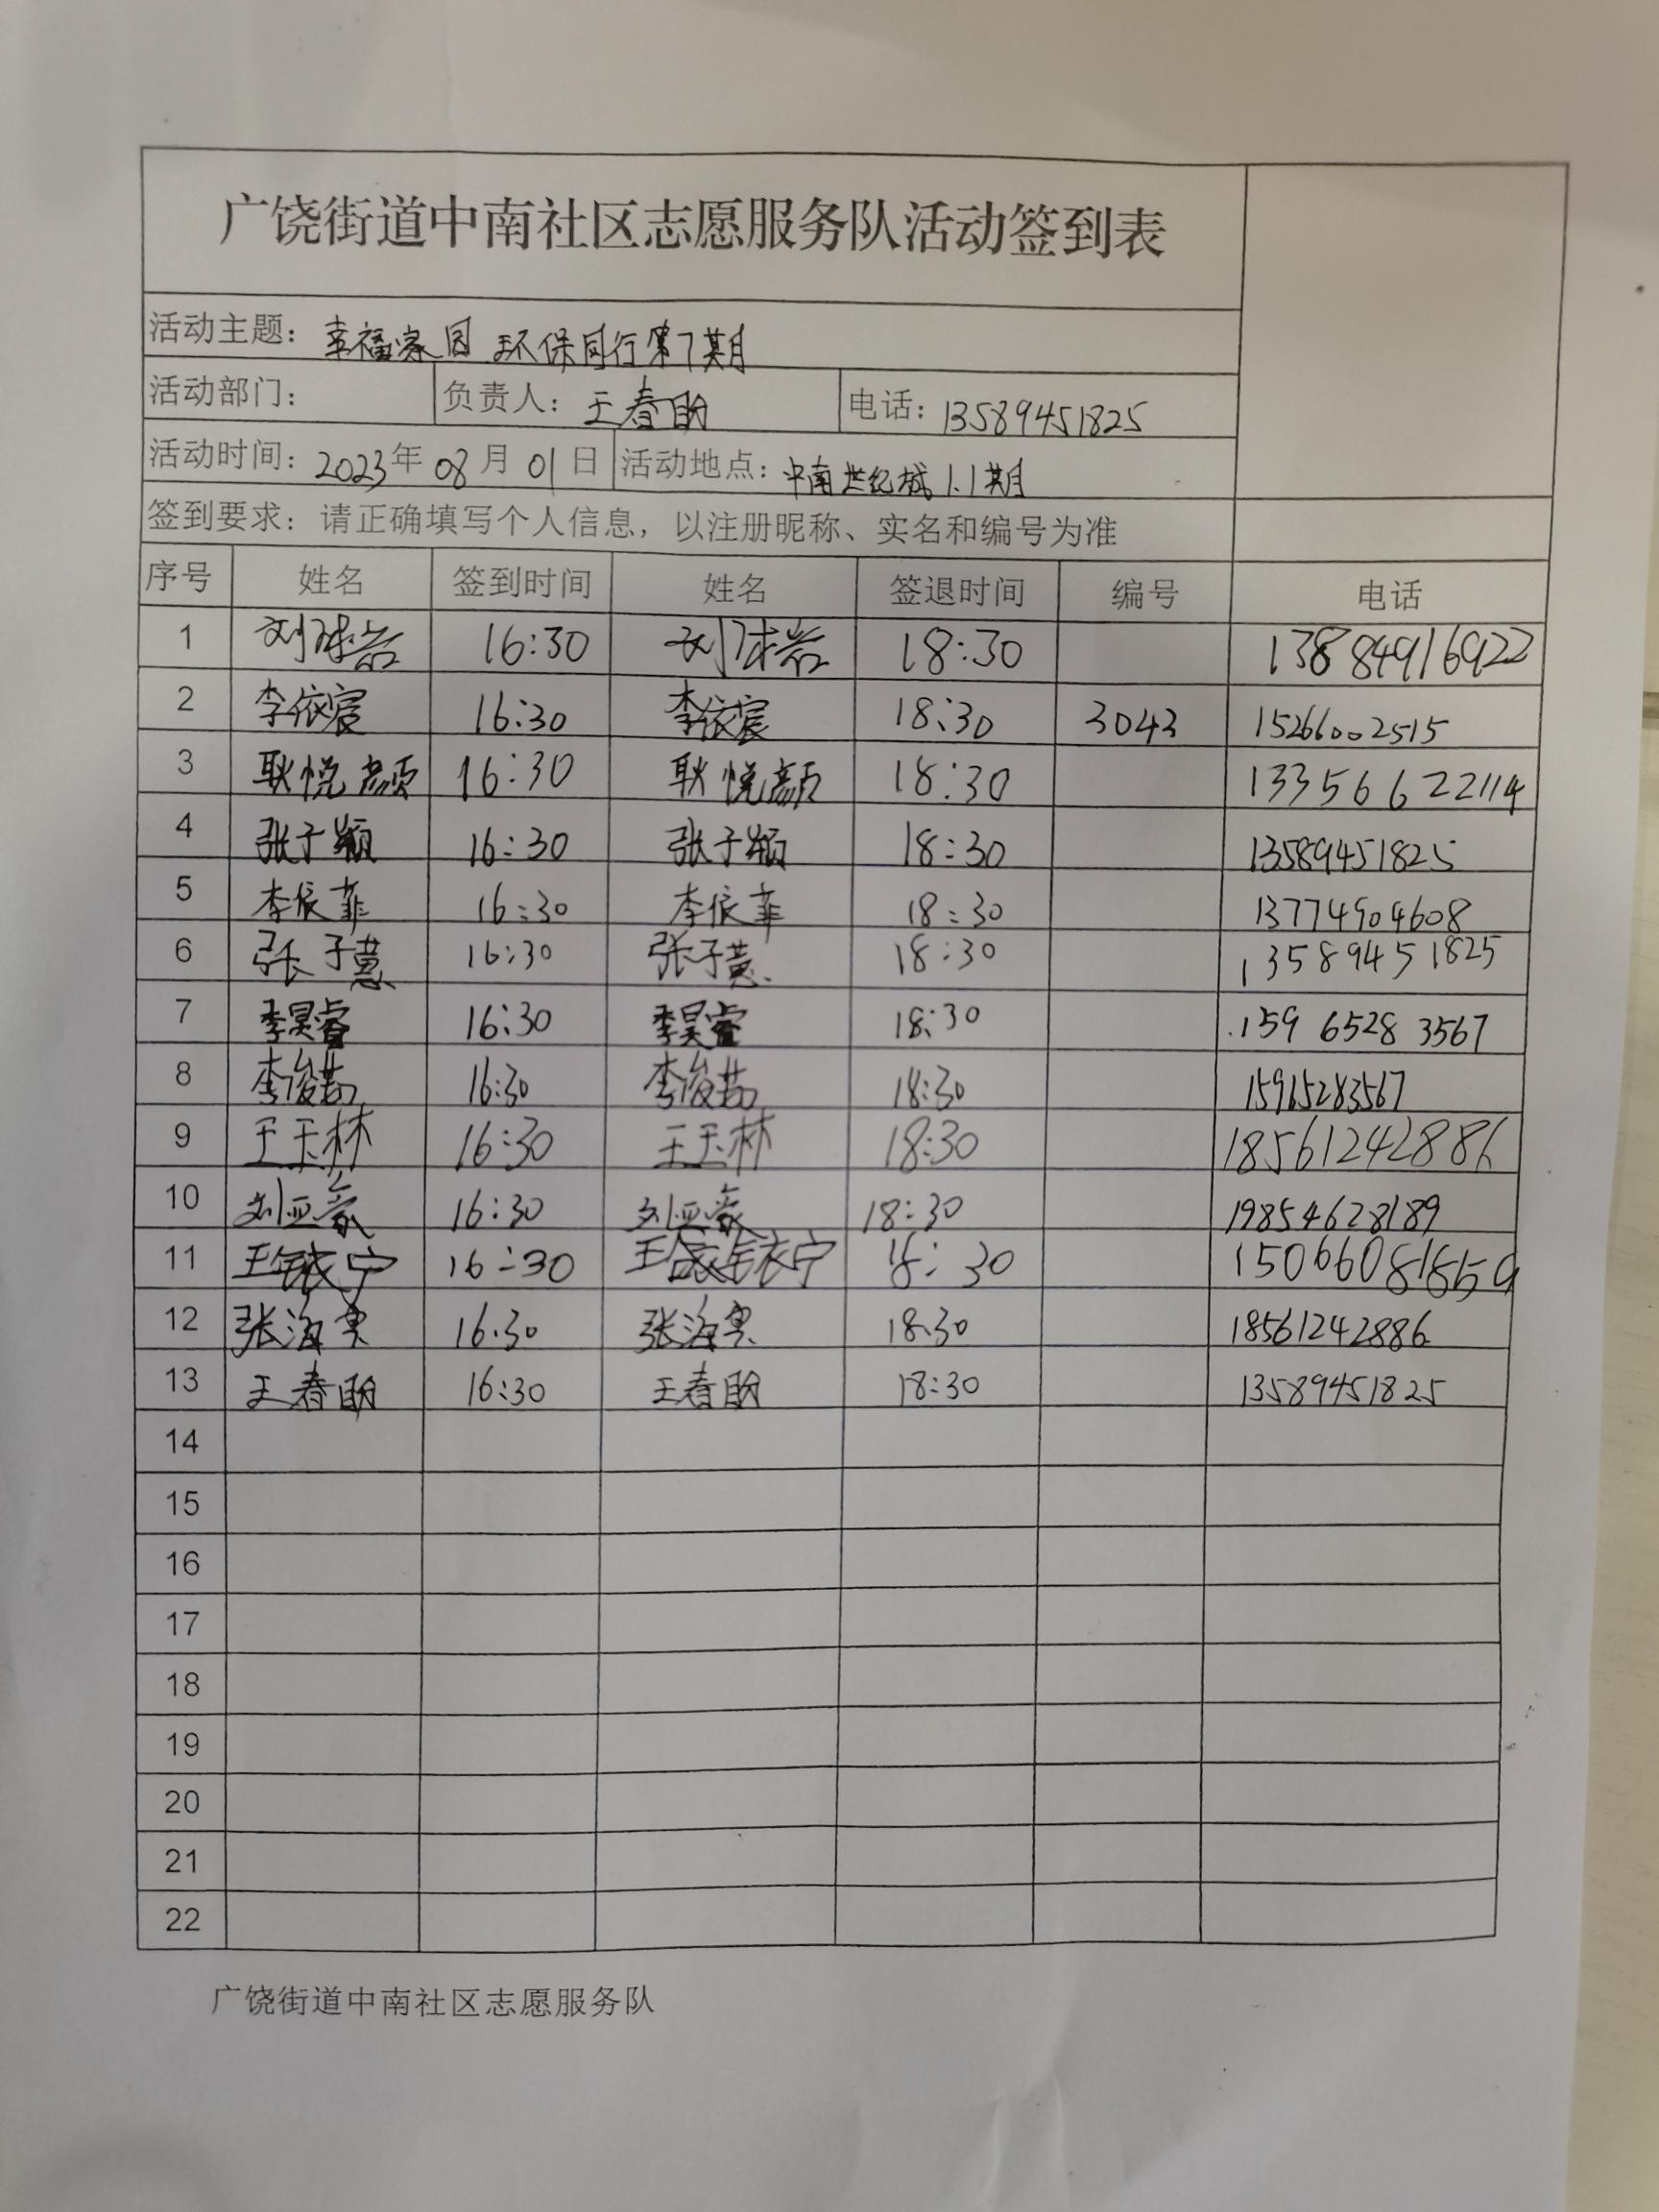 广饶街道中南社区志愿服务队活动签到表
活动主题：幸福家园 环保同行第7期
活动部门： 负责人：王春盼 电话：13589451825
活动时间：2023年08月01日 活动地点：中南世纪城1.1期
签到要求：请正确填写个人信息，以注册昵称、实名和编号为准
序号 姓名 签到时间 姓名 签退时间 编号 电话
1 16:30 18:30 13884916922
2 李依宸 16:30 李依宸 18:30 3043 15266002515
3 耿悦颜 16:30 耿悦颜 18:30 13356622114
4 张子颖 16:30 张子颖 18:30 13589451825
5 李依菲 16:30 李依菲 18:30 13774904608
6 张子慧 16:30 张子慧 18:30 13589451825
7 李昊睿 16:30 李昊睿 18:30 159 6528 3567
8 李俊茹 16:30 李俊茹 18:30 15965283567
9 王玉林 16:30 王玉林 18:30 18561242886
10 刘亚豪 16:30 刘亚豪 18:30 19854628189
11 16:30 18:30 15066081859
12 16.30 18.30 18561242886
13 王春盼 16:30 王春盼 18:30 13589451825
14
15
16
17
18
19
20
21
22
广饶街道中南社区志愿服务队